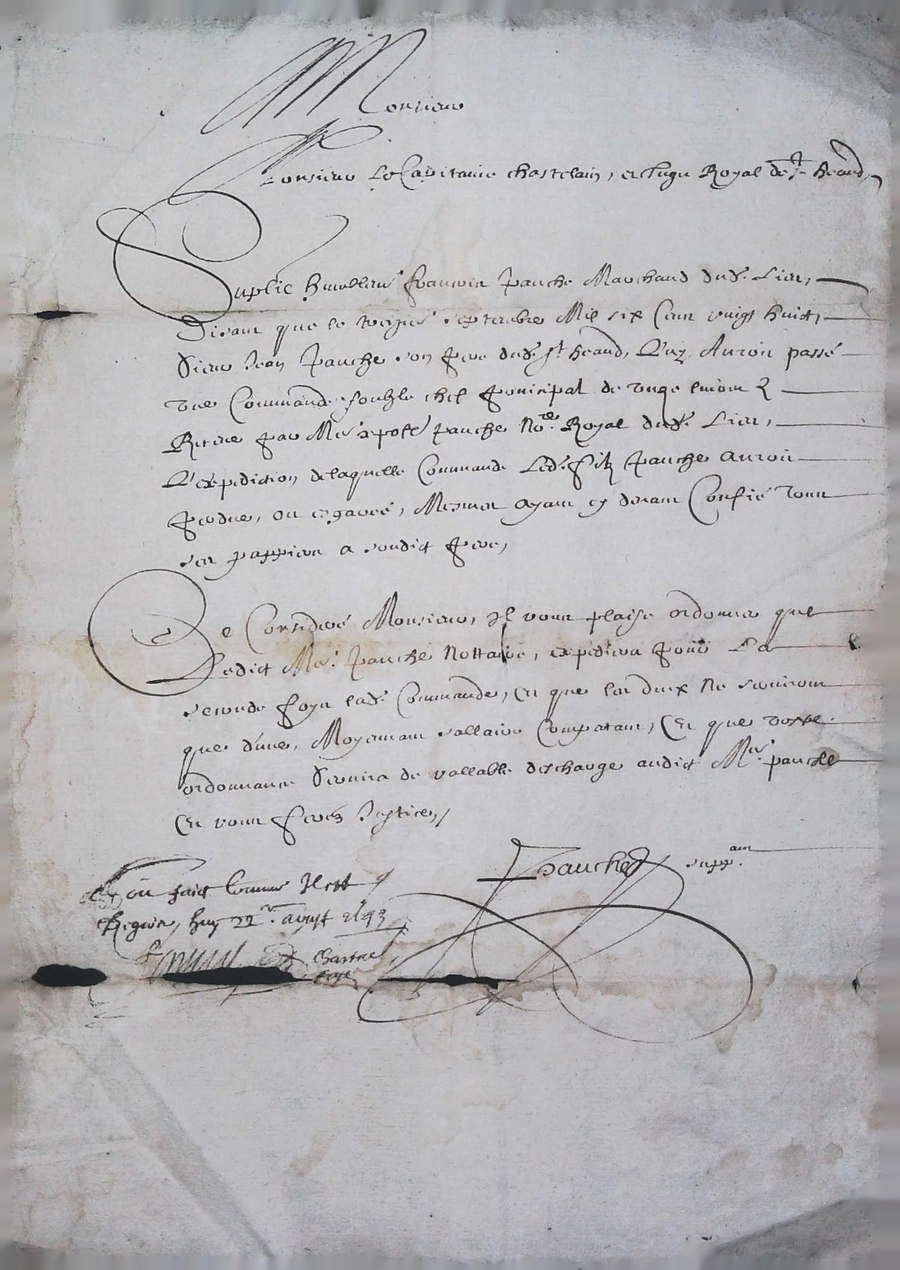 Monsieur
Monsieur Le Capitaine chastelain, et Juge Royal de St heand,
Suplie humblemt francois panche Marchand dudt. Lieu,
Disant que le septembre Mil six Cent vingt huict,
Sieur Jean panche son frere dudt. St heand, Luy Auroit passé
une Commande soubz le chef principal de
Receue par Mre panche Nore. Royal dudt. Lieu,
L'expedition de laquelle Commande Ledt. panche auroit
perdue, ou esgarée, Mesmes ayant cy devant Confié tous
ses pappiers a sondict frere,
Ce Consideré Monsieur, Il vous plaise ordonner que
Ledict Mre. panche Nottaire, expediera pour La
seconde foys ladt. Commande, Et que les deux Ne serviront
que d'une, Moyennant sallaire Competant, Et que vostre
ordonnance servira de vallable descharge audict Mre. panche
Et vous ferez Justice,
panche suppant.
Soit faict comme Il est
Requis, 22